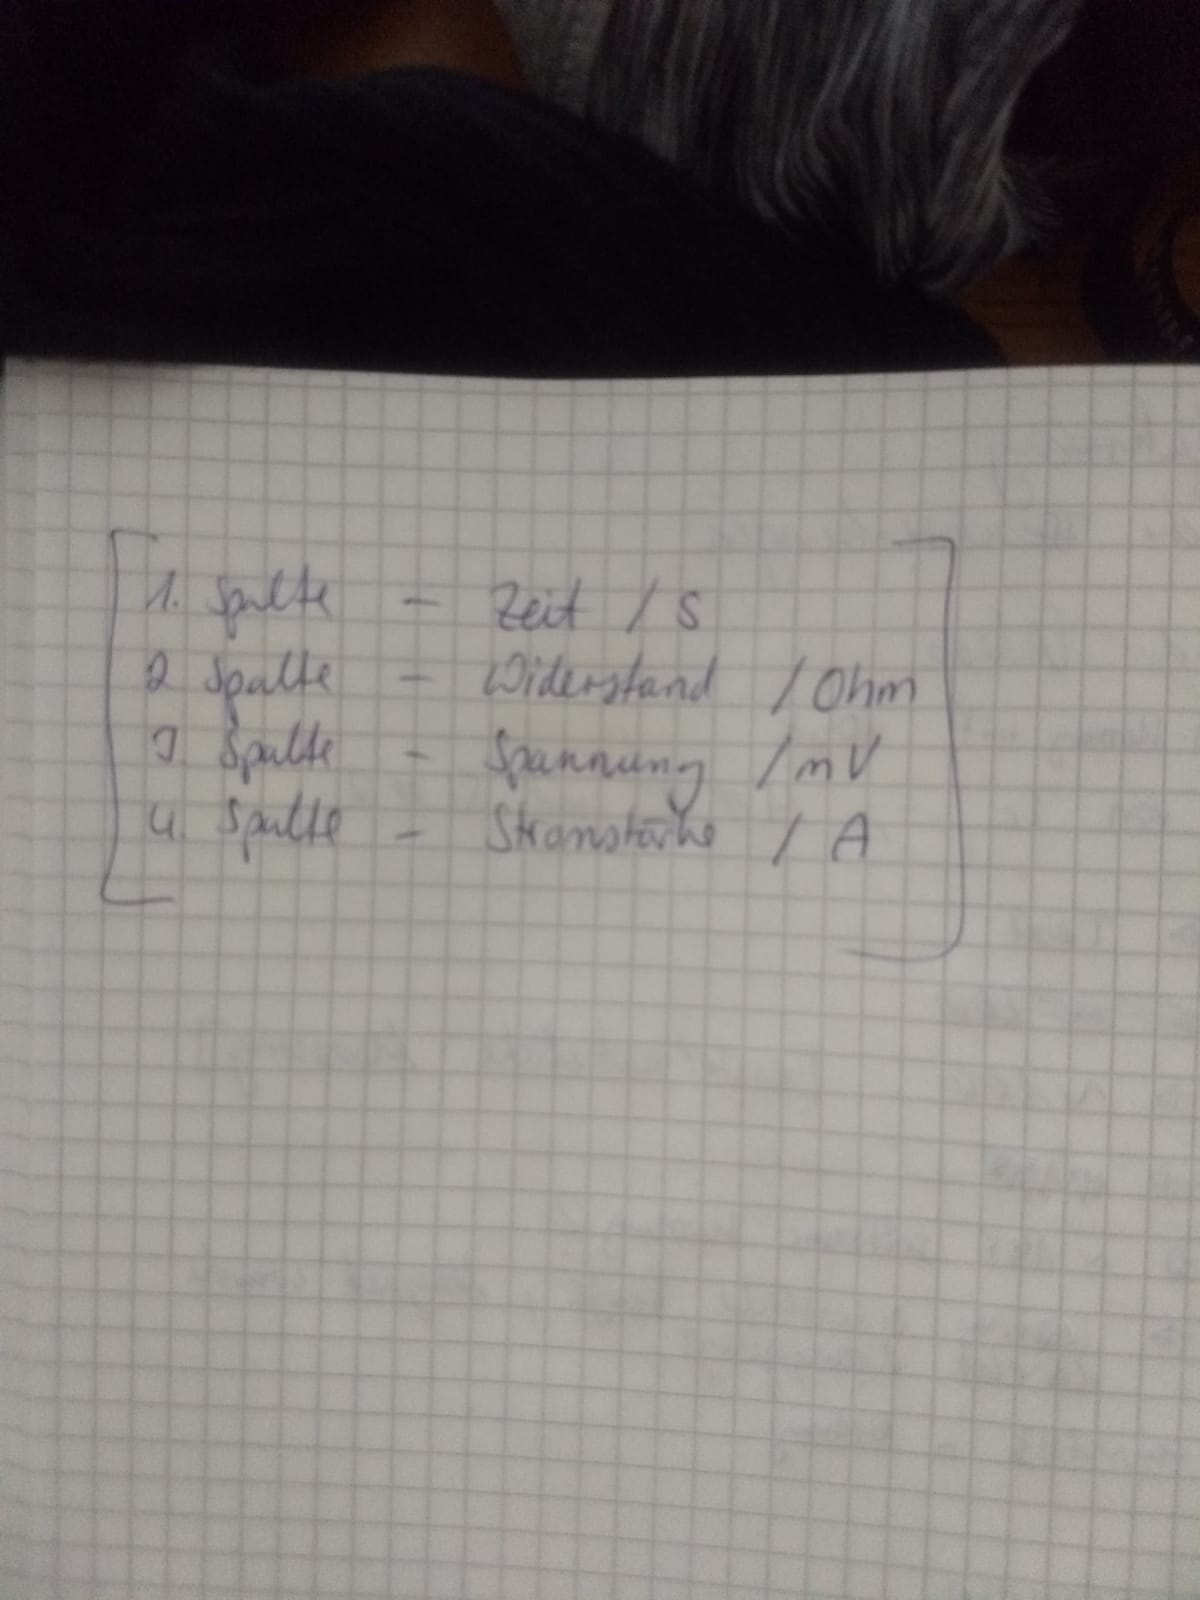 1. Spalte - Zeit / s
2 Spalte - Widerstand / Ohm
3. Spalte - Spannung / mV
4. Spalte - Stromstärke / A